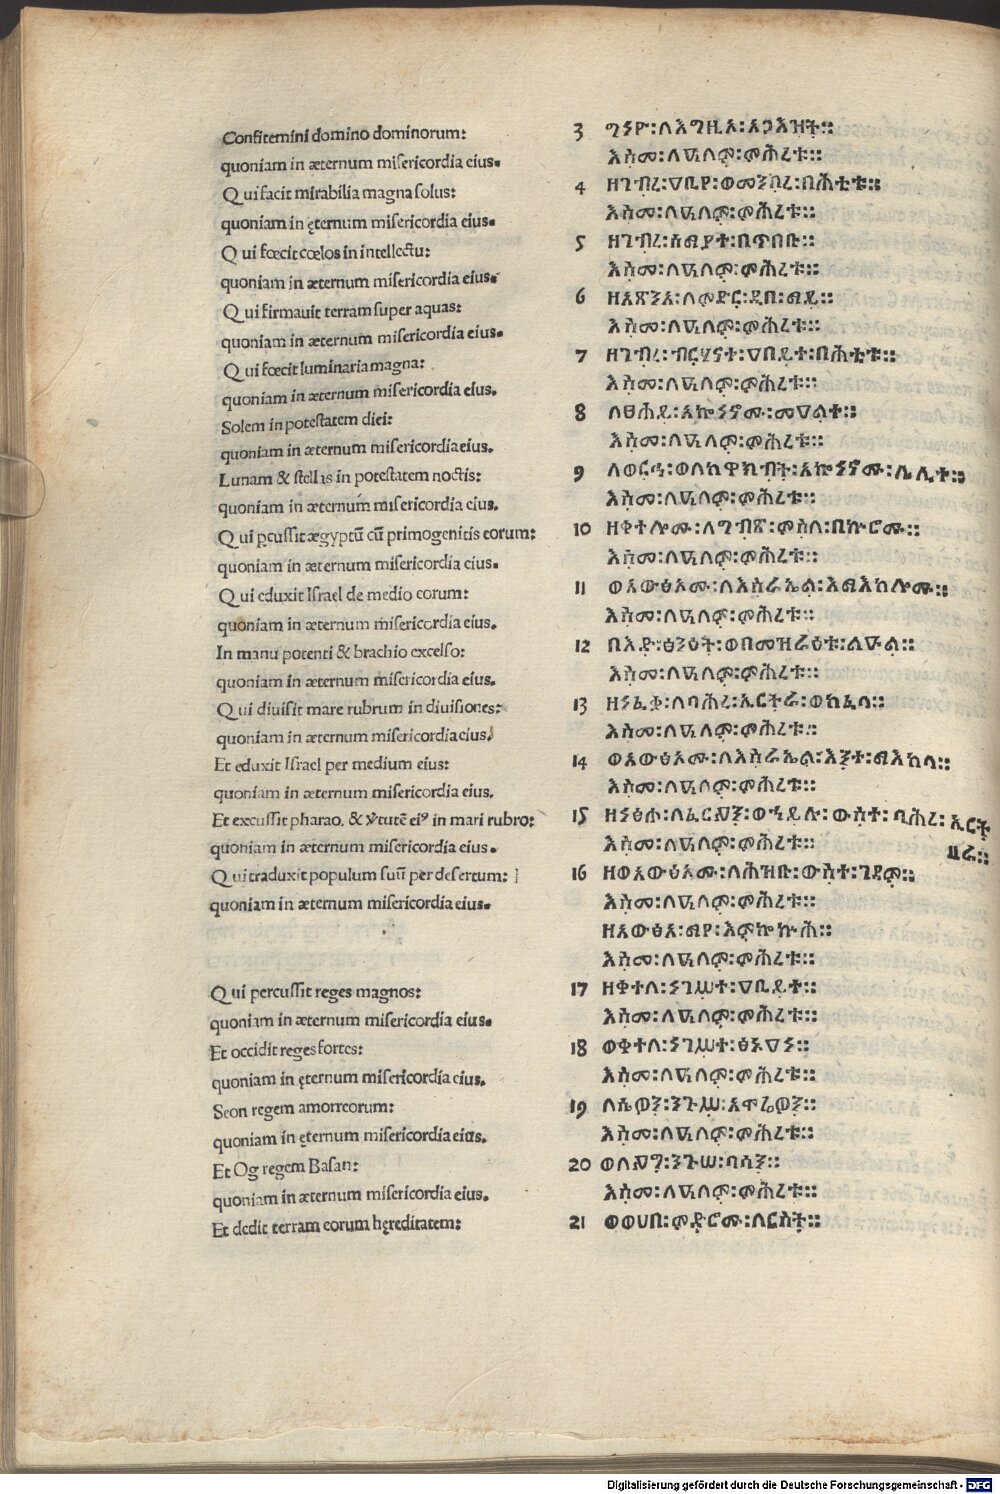 Confitemini domino dominorum:
quoniam in æternum misericordia eius.
Qui facit mirabilia magna solus:
quoniam in ęternum misericordia eius.
Qui fœcit cœlos in intellectu:
quoniam in æternum misericordia eius.
Qui firmauit terram super aquas:
quoniam in æternum misericordia eius.
Qui fœcit luminaria magna:
quoniam in æternum misericordia eius.
Solem in potestatem diei:
quoniam in æternum misericordia eius.
Lunam & stellas in potestatem noctis:
quoniam in æternum misericordia eius.
Qui p̲cussit ægyptũ cũ primogenitis eorum:
quoniam in æternum misericordia eius.
Qui eduxit Israel de medio eorum:
quoniam in æternum misericordia eius.
In manu potenti & brachio excelso:
quoniam in æternum misericordia eius.
Qui diuisit mare rubrum in diuisiones:
quoniam in æternum misericordia eius.
Et eduxit Israel per medium eius:
quoniam in æternum misericordia eius.
Et excussit pharao. & v̓tutẽ eiꝰ in mari rubro:
quoniam in æternum misericordia eius.
Qui traduxit populum suũ per desertum:
quoniam in æternum misericordia eius.
Qui percussit reges magnos:
quoniam in æternum misericordia eius.
Et occidit reges fortes:
quoniam in ęternum misericordia eius.
Seon regem amorreorum:
quoniam in ęternum misericordia eius.
Et Og regem Basan:
quoniam in æternum misericordia eius.
Et dedit terram eorum hęreditatem:
3 ግነዩ፡ለእግዚአ፡አጋእዝት፡፡
እስመ፡ለዓለም፡ምሕረቱ፡፡
4 ዘገብረ፡ዐቢየ፡ወመንክረ፡በሕቲቱ፡፡
እስመ፡ለዓለም፡ምሕረቱ፡፡
5 ዘገብረ፡ሰማያተ፡በጥበቡ፡፡
እስመ፡ለዓለም፡ምሕረቱ፡፡
6 ዘአጽንአ፡ለምድር፡ዲበ፡ማይ፡፡
እስመ፡ለዓለም፡ምሕረቱ፡፡
7 ዘገብረ፡ብርሃናተ፡ዐበይተ፡በሕቲቱ፡፡
እስመ፡ለዓለም፡ምሕረቱ፡፡
8 ለፀሐይ፡አኰነኖሙ፡መዐልተ፡፡
እስመ፡ለዓለም፡ምሕረቱ፡፡
9 ለወርኅ፡ወለከዋክብት፡አኰነኖሙ፡ሌሊተ፡፡
እስመ፡ለዓለም፡ምሕረቱ፡፡
10 ዘቀተሎሙ፡ለግብጽ፡ምስለ፡በኵሮሙ፡፡
እስመ፡ለዓለም፡ምሕረቱ፡፡
11 ወአውፅአሙ፡ለእስራኤል፡እማእከሎሙ፡፡
እስመ፡ለዓለም፡ምሕረቱ፡፡
12 በእድ፡ፅንዕት፡ወበመዝራዕት፡ልዑል፡፡
እስመ፡ለዓለም፡ምሕረቱ፡፡
13 ዘነፈቃ፡ለባሕረ፡ኤርትራ፡ወከፈላ፡፡
እስመ፡ለዓለም፡ምሕረቱ፡፡
14 ወአውፅአሙ፡ለእስራኤል፡እንተ፡ማእከላ፡፡
እስመ፡ለዓለም፡ምሕረቱ፡፡
15 ዘነፅኆ፡ለፈርዖን፡ወኀይሉ፡ውስተ፡ባሕረ፡ኤርት
ራ፡፡
እስመ፡ለዓለም፡ምሕረቱ፡፡
16 ዘወአውፅአሙ፡ለሕዝቡ፡ውስተ፡ገዳም፡፡
እስመ፡ለዓለም፡ምሕረቱ፡፡
ዘአውፅአ፡ማየ፡እምኰኵሕ፡፡
እስመ፡ለዓለም፡ምሕረቱ፡፡
17 ዘቀተለ፡ነገሥተ፡ዐቢይተ፡፡
እስመ፡ለዓለም፡ምሕረቱ፡፡
18 ወቀተለ፡ነገሥተ፡ፅኑዐነ፡፡
እስመ፡ለዓለም፡ምሕረቱ፡፡
19 ለሴዎን፡ንጉሥ፡አሞሬዎን፡፡
እስመ፡ለዓለም፡ምሕረቱ፡፡
20 ወለዖግ፡ንጉሠ፡ባሳን፡፡
እስመ፡ለዓለም፡ምሕረቱ፡፡
21 ወወሀበ፡ምድሮሙ፡ለርስት፡፡
Digitalisierung gefördert durch die Deutsche Forschungsgemeinschaft - DFG